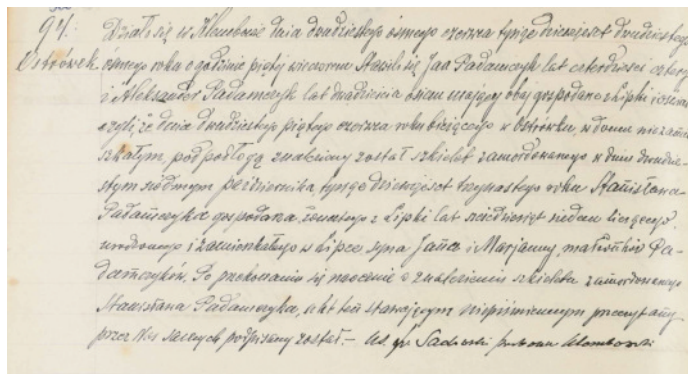 97.
Ostrówek
Działo się w Klembowie dnia dwudziestego ósmego czerwca tysiąc dziewięćset dwudziestego
ósmego roku o godzinie piątej wieczorem. Stawili się Jan Padamczyk lat czterdzieści cztery
i Aleksander Padamczyk lat dwadzieścia osiem mający obaj gospodarze z Lipki i oświad-
czyli, że dnia dwudziestego piątego czerwca roku bieżącego w Ostrówku, w domu niezamie-
szkałym, pod podłogą znaleziony został szkielet zamordowanego w dniu dwudzie-
stym siódmym października tysiąc dziewięćset trzynastego roku Stanisława
Padamczyka gospodarza, żonatego z Lipki lat sześćdziesiąt siedem liczącego,
urodzonego i zamieszkałego w Lipce syna Jana i Marjanny, małżonków Pa-
damczyków. Po przekonaniu się naocznie o znalezieniu szkieletu zamordowanego
Stanisława Padamczyka, akt ten stawającym niepiśmiennym przeczytany
przez Nas samych podpisany został.— Ks. Sadowski